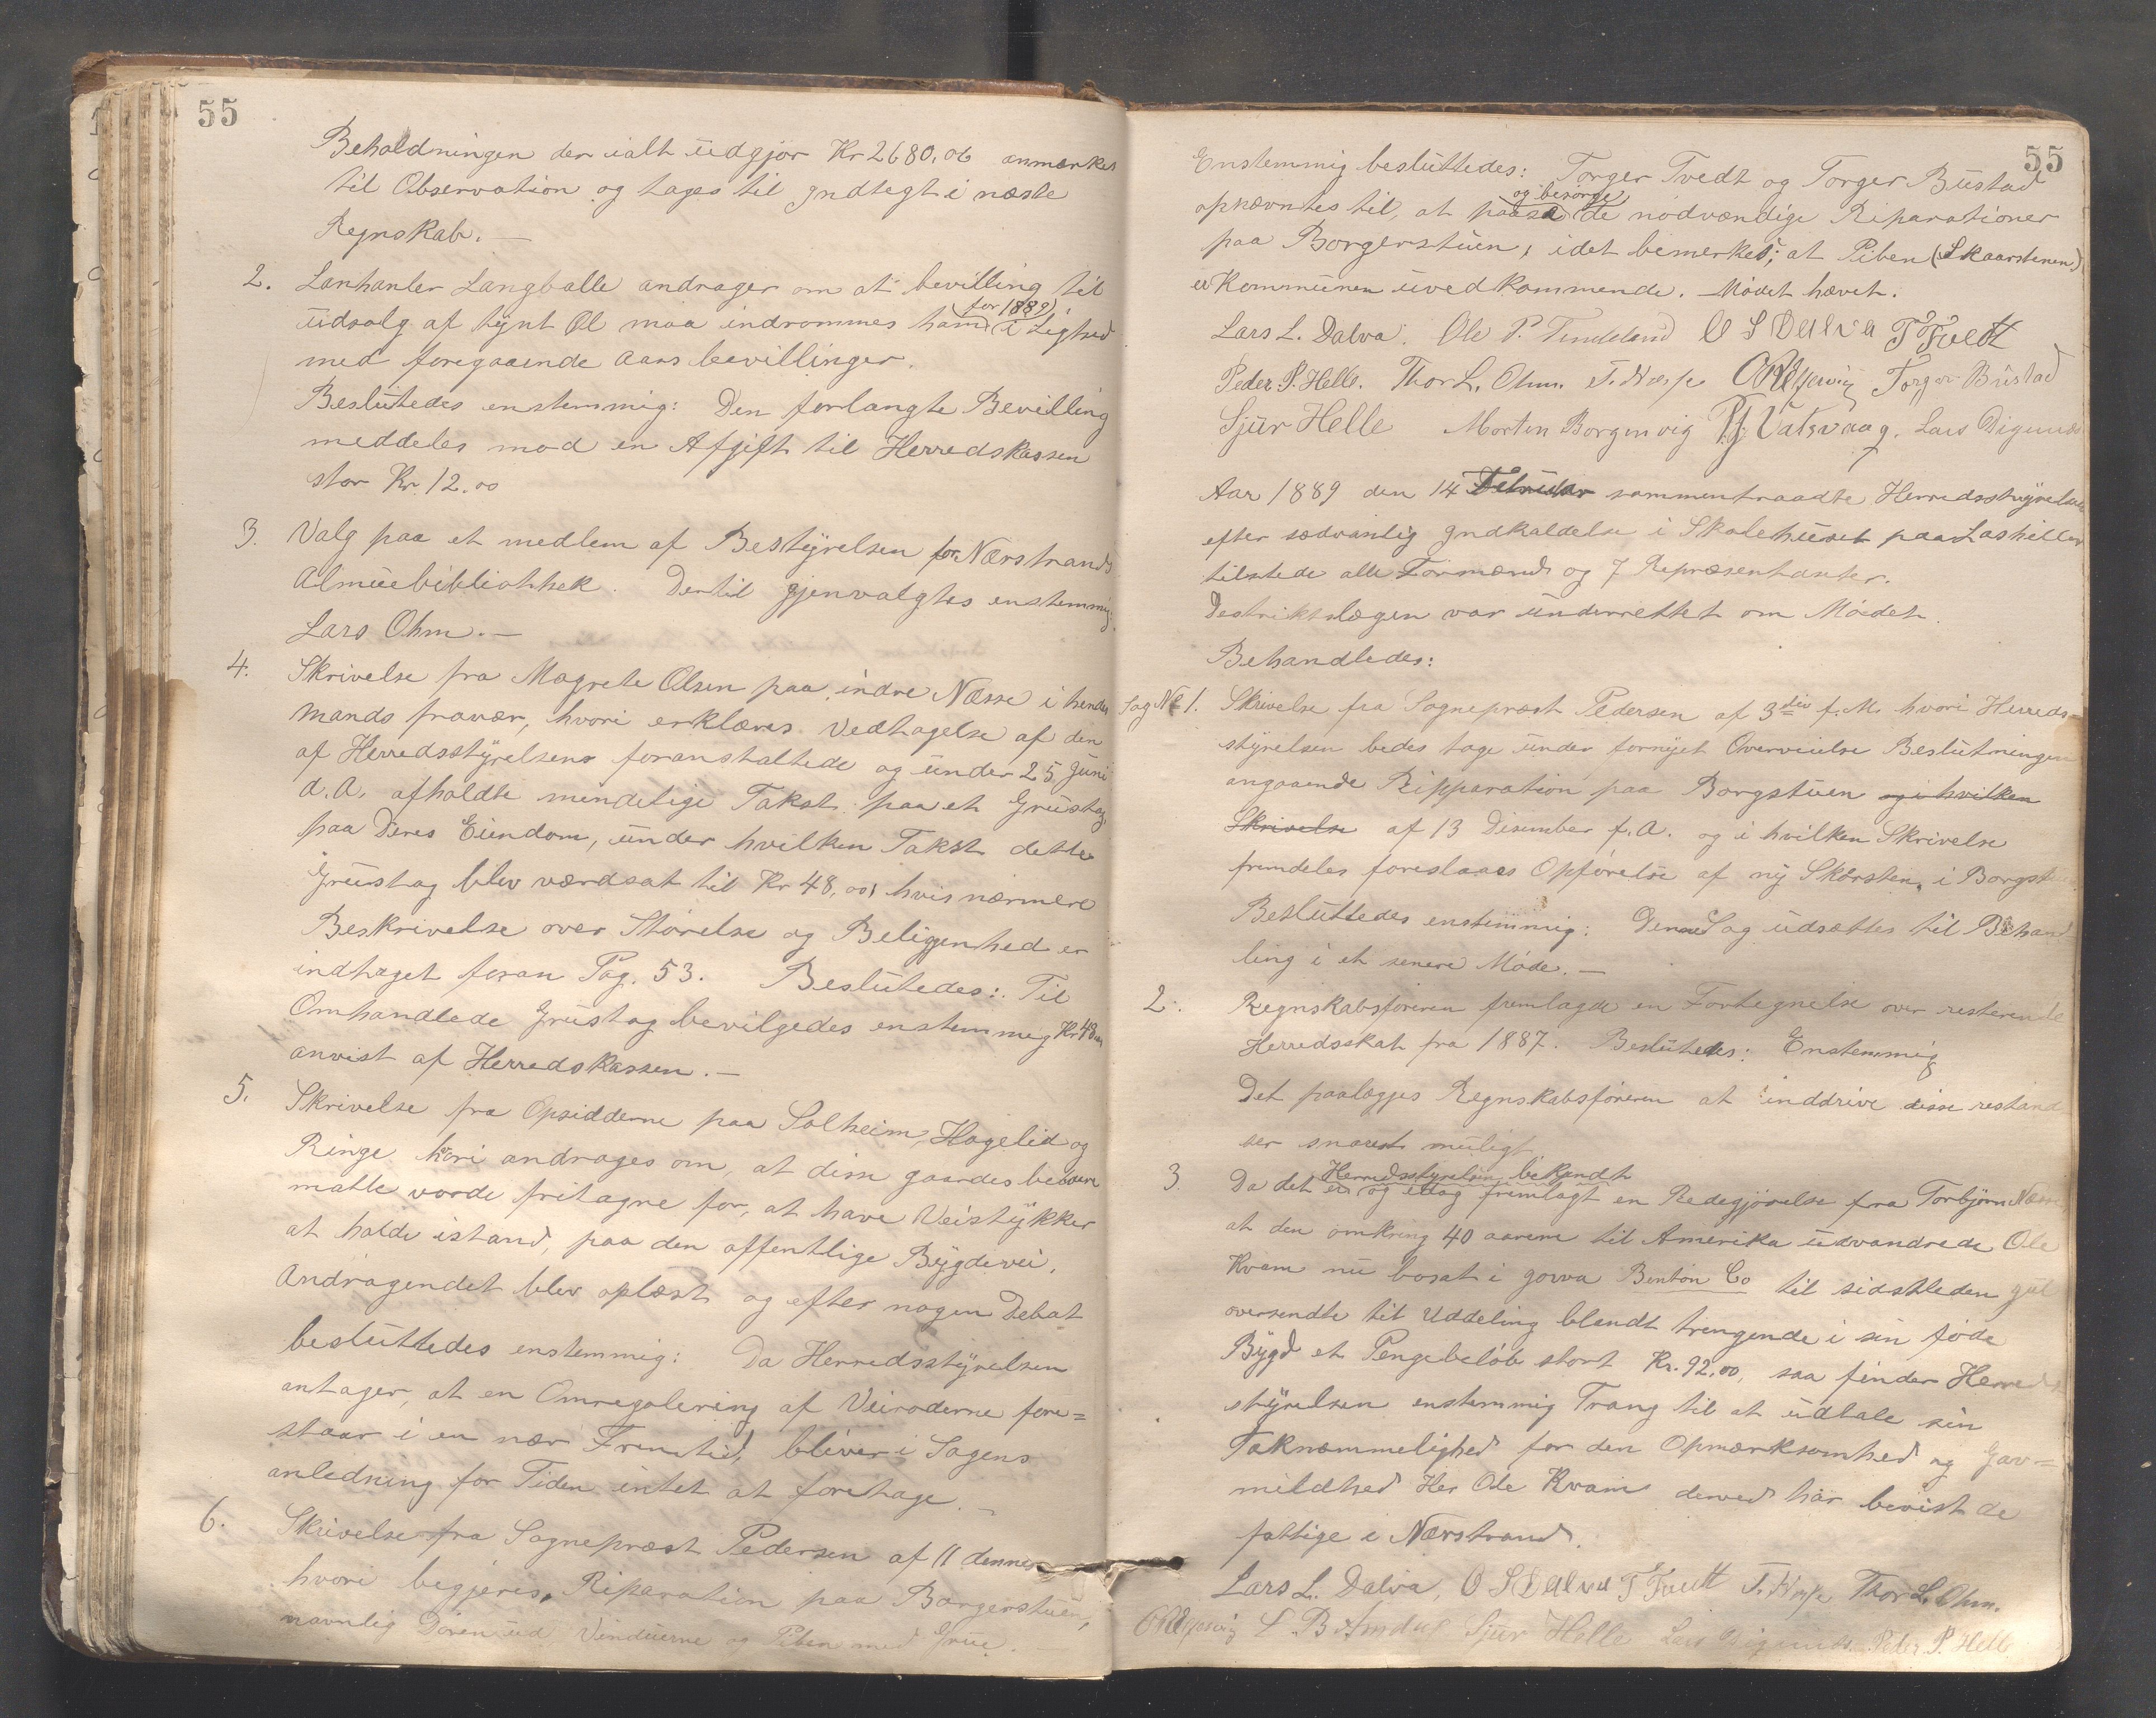 55
Behaldningen der ialt üdgjør Kr 2680,06 anmærkes
til Observation og tages til Indtægt i næste
Regnskab. —
2. Lanhanler Langballe andrager om at bevilling til
üdsalg af tÿnt Øl maa indrømmes ham (for 1889) i Lighed
med foregaaende Aars bevillinger.
Beslütedes enstemmig: Den forlangte Bevilling
meddeles mod en Afgift til Herredskassen
stor Kr. 12.00
3. Valg paa et medlem af Bestÿrelsen for Nærstrands
Almüebibliothek. Dertil gjenvalgtes enstemmig.
Lars Ohm. —
4. Skrivelse fra Magrete Olsen paa indre Næsse i hendes
Mands fravær, hvori erklæres Vedtagelse af den
af Herredsstÿrelsens foranstaltede og ünder 25 Jüni
d.A. afholdte mendelige Takst paa et Grüstag
paa Deres Eiendom, ünder hvilken Takst dette
Grüstag blev værdsat til Kr 48,00, hvis nærmere
Beskrivelse over Størelse og Beliggenhed er
indtaget foran Pag. 53. Beslütedes: Til
Omhandlede Grüstag bevilgedes enstemmig Kr 48,00
anvist af Herredskassen. —
5. Skrivelse fra Opsidderne paa Solheim, Hagelid og
Ringe hvori andrages om, at disse gaardes beboere
maatte vorde fritagne for, at have Veistÿkker
at holde istand, paa den offentlige Bÿgdevei.
Andragendet blev oplæst og efter nogen Debat
beslüttedes enstemmig: Da Herredsstÿrelsen
antager, at en Omregølering af Veiroderne fore=
staar i en nær Fremtid, bliver i Sagens
anledning for Tiden intet at foretage. —
6. Skrivelse fra Sognepræst Pedersen af 11 dennes
hvori begjæres, Riparation paa Borgerstüen,
navnlig Døren üd, Vindüerne og Piben med Grüe.
55
Enstemmig beslüttedes: Torger Tvedt og Torger Büstad
opnævntes til, at paase og besørge de nødvændige Riparationer
paa Borgerstüen, idet bemerkes; at Piben (Skaarstenen)
er Kommünen üvedkommende. Mødet hævet.
Lars L. Dalva. Ole P. Tindeland O S Dalva T Tvedt
Peder P. Helle. Thor L. Ohm. T. Næsse Torger Büstad
Sjür Helle Morten Borgenvig Vatsvaag. Lars Digernes
Aar 1889 den 14 Febrüdar sammentraadte Herredsstÿrelsen
efter sædvanlig Indkaldelse i Skolehüset paa Lashiller
tilstede alle Formænd og 7 Repræsentanter.
Destriktslægen var ünderrettet om Mødet.
Behandledes:
Sag No 1. Skrivelse fra Sognepræst Pedersen af 3die f.M. hvori Herreds=
stÿrelsen bedes tage ünder fornÿet Overveielse Beslütningen
angaaende Ripparation paa Borgstüen og i hvilken
Skrivelse af 13 Disember f.A. og i hvilken Skrivelse
fremdeles foreslaaes Opførelse af nÿ Skorsten i Borgstüen
Beslüttedes enstemmig: Denne Sag üdsættes til Behand
ling i et senere Møde. —
2. Regnskabsføreren fremlagde en Fortegnelse over resterende
Herredsskat fra 1887. Beslütedes: Enstemmig
Det paalægges Regnskabsføreren at inddrive disse restand
ser snarest müligt
3 Da det er Herredsstyrelsen bekendt og idag fremlagt en Redegjørelse fra Torbjørn Næsse,
at den omkring 40 aarene til Amerika üdvandrede Ole
Kvam nü bosat i Jowa Benton Co til sidstleden Jül
oversendte til Uddeling blandt trengende i sin føde
Bÿgd et Pengebeløb stort Kr. 92,00, saa finder Herreds
stÿrelsen enstemmig Trang til at üdtale sin
Taknæmmelighed for den Opmærksomhed og Gav=
mildhed Her Ole Kvam derved har bevist de
fattige i Nærstrand.
Lars L. Dalva, O S Dalva T Tvedt T. Næsse Thor L. Ohm.
L. B. Amdal Sjür Helle Lars Digernes. Peder P. Helle